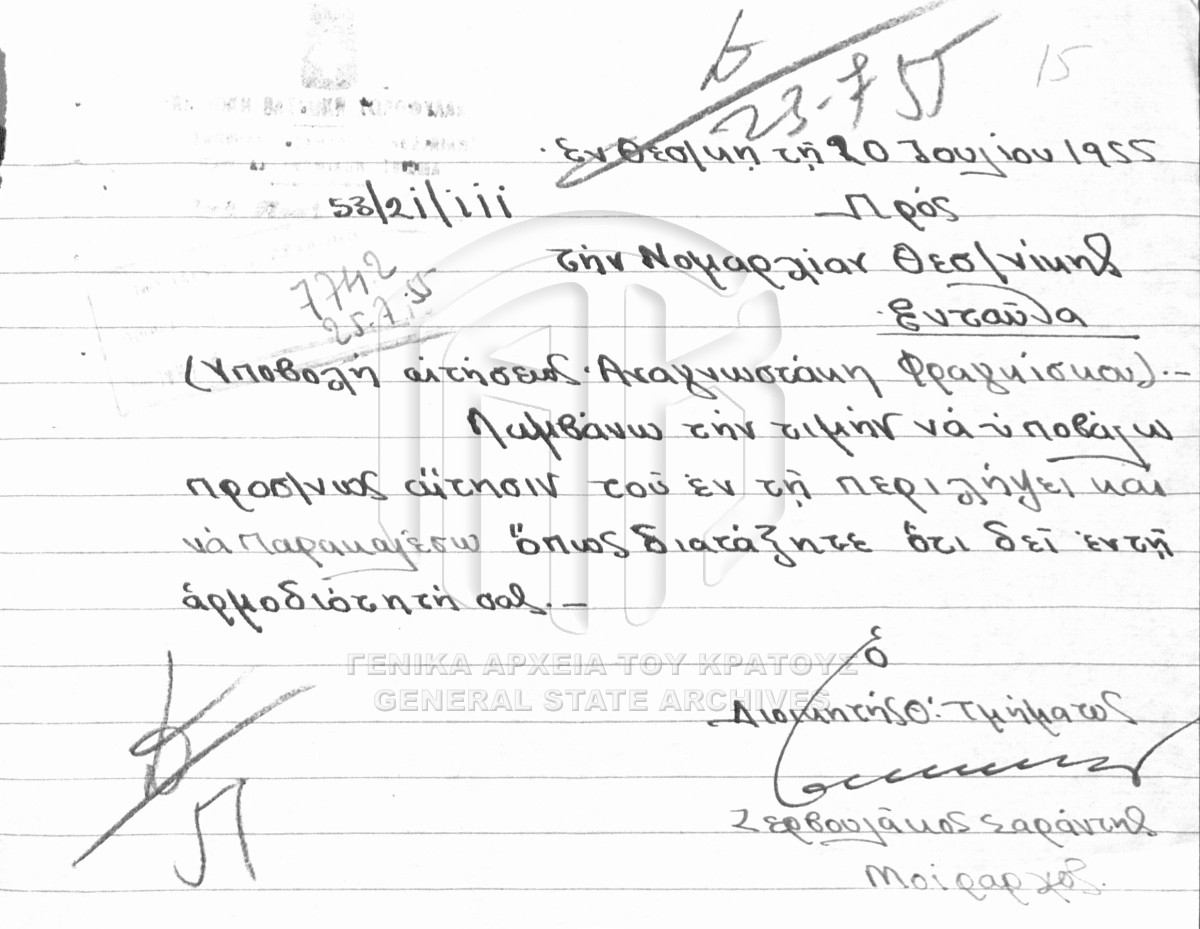 23-7 55
15
Ἐν Θεσ/κῃ τῇ 20 Ἰουλίου 1955
53/21/iii
Πρός
τήν Νομαρχίαν Θεσ/νίκης
Ἐνταῦθα
7742
25.7.55
(Ὑποβολή αἰτήσεως Αναγνωστάκη Φραγκίσκου).-
Λαμβάνω τήν τιμήν νά ὑποβάλω
προσ/νως αἴτησιν τοῦ ἐν τῇ περιλήψει καί
νά παρακαλέσω ὅπως διατάξητε ὅτι δεῖ ἐν τῇ
ἁρμοδιότητή σας.-
ΓΕΝΙΚΑ ΑΡΧΕΙΑ ΤΟΥ ΚΡΑΤΟΥΣ
GENERAL STATE ARCHIVES
ὁ
Διοικητής Θ: Τμήματος
Ζερβουλάκος Σαράντης
Μοίραρχος.